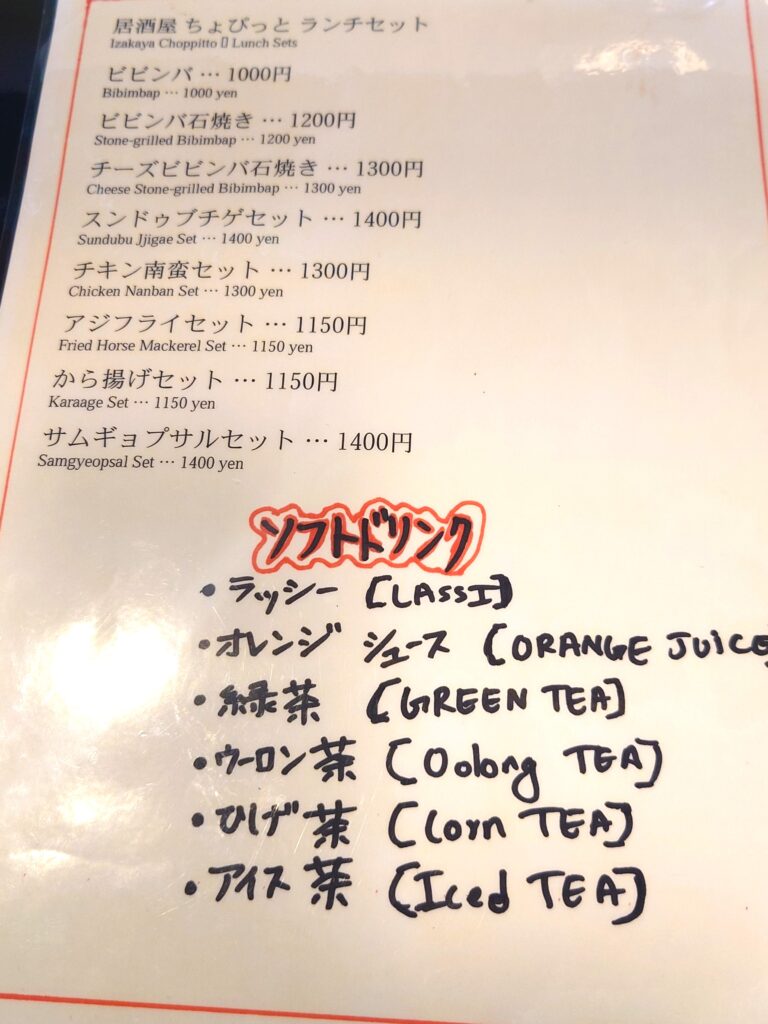 居酒屋 ちょぴっと ランチセット
Izakaya Choppitto ▯ Lunch Sets
ビビンバ … 1000円
Bibimbap … 1000 yen
ビビンバ石焼き … 1200円
Stone-grilled Bibimbap … 1200 yen
チーズビビンバ石焼き … 1300円
Cheese Stone-grilled Bibimbap … 1300 yen
スンドゥブチゲセット … 1400円
Sundubu Jjigae Set … 1400 yen
チキン南蛮セット … 1300円
Chicken Nanban Set … 1300 yen
アジフライセット … 1150円
Fried Horse Mackerel Set … 1150 yen
から揚げセット … 1150円
Karaage Set … 1150 yen
サムギョプサルセット … 1400円
Samgyeopsal Set … 1400 yen
ソフトドリンク
・ラッシー [LASSI]
・オレンジ シュース [ORANGE JUICE
・緑茶 [GREEN TEA]
・ウーロン茶 [Oolong TEA]
・ひげ茶 [Corn TEA]
・アイス茶 [Iced TEA]